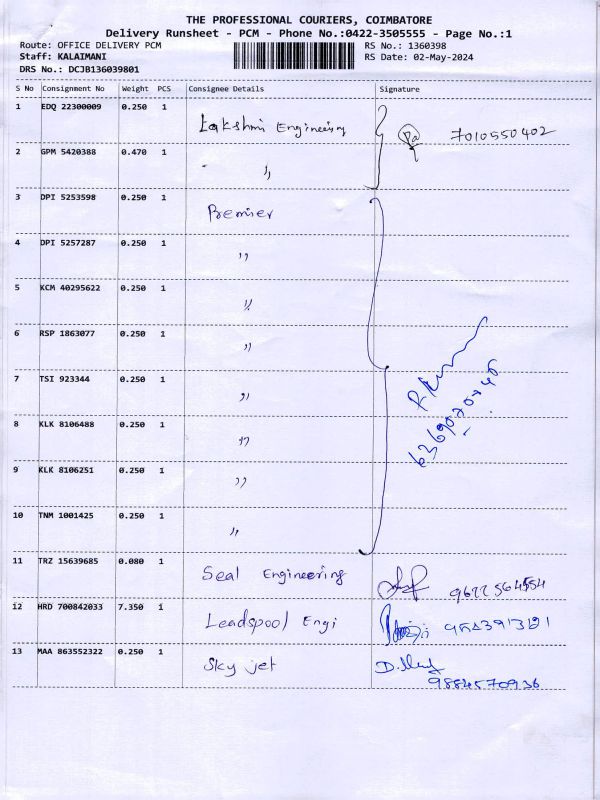 THE PROFESSIONAL COURIERS, COIMBATORE
Delivery Runsheet - PCM - Phone No.:0422-3505555 - Page No.:1
Route: OFFICE DELIVERY PCM RS No.: 1360398
Staff: KALAIMANI RS Date: 02-May-2024
DRS No.: DCJB136039801
S No Consignment No Weight PCS Consignee Details Signature
1 EDQ 22300009 0.250 1 Lakshmi Engineering 7010550402
2 GPM 5420388 0.470 1 "
3 DPI 5253598 0.250 1 Premier
4 DPI 5257287 0.250 1 "
5 KCM 40295622 0.250 1 "
6 RSP 1863077 0.250 1 "
7 TSI 923344 0.250 1 "
8 KLK 8106488 0.250 1 "
9 KLK 8106251 0.250 1 "
10 TNM 1001425 0.250 1 "
11 TRZ 15639685 0.080 1 Seal Engineering 9622564554
12 HRD 700842033 7.350 1 Leadspool Engi
13 MAA 863552322 0.250 1 Sky jet
9884570936